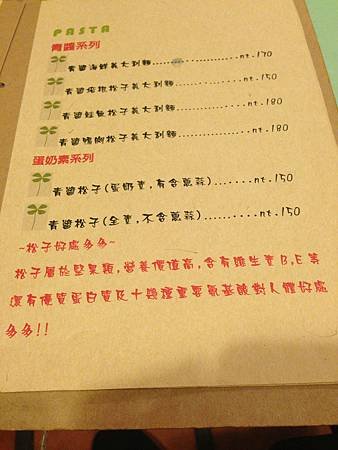 PASTA
青醬系列
青醬海鮮義大利麵..............nt.170
青醬燻雞松子義大利麵............nt.150
青醬鮭魚松子義大利麵............nt.180
青醬鴨胸松子義大利麵............nt.180
蛋奶素系列
青醬松子(蛋奶素,有含蔥蒜)..........nt.150
青醬松子(全素,不含蔥蒜)..........nt.150
~松子好處多多~
松子屬於堅果類,營養價值高,含有維生素B,E等
還有優質蛋白質及十幾種重要氨基酸對人體好處
多多!!